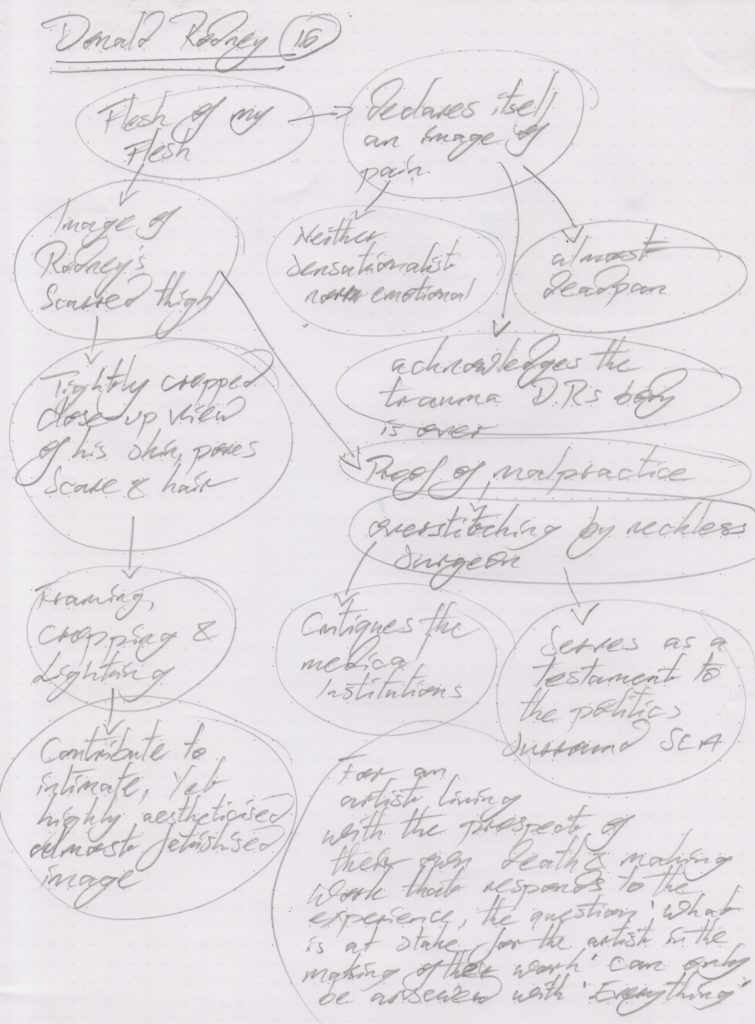 Donald Rodney 16
Flesh of my
Flesh
declares itself
an image of
pain.
Image of
Rodney's
scarred thigh
Neither
sensationalist
nor emotional
almost
deadpan
acknowledges the
trauma D.Rs body
is over
Tightly cropped
close-up view
of his skin, pores
scare & hair
Proof of malpractice
overstitching by reckless
surgeon
Framing,
cropping &
Lighting
Critiques the
medical
Institutions
Serves as a
testament to
the politics
surround SCA
Contribute to
intimate, Yet
highly aestheticised
almost fetishised
image
For an
artist living
with the prospect of
their own death & making
work that responds to the
experience, the question 'what
is at stake for the artist in the
making of their work' can only
be answered with 'Everything'